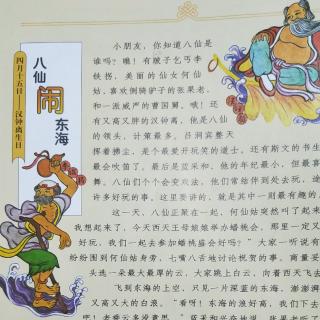 四月十五日——汉钟离生日
八仙
闹
东海
小朋友，你知道八仙是
谁吗？噢！有跛子乞丐李
铁拐，美丽的仙女何仙
姑，喜欢倒骑驴子的张果老，
和一派威严的曹国舅，哦！还
有又高又胖的汉钟离，他是八仙
的领头，计策最多。吕洞宾整天
挥着拂尘，是个最爱开玩笑的道士，还有斯文的书生
最会吹笛了。最后是蓝采和，他的年纪最小，但最喜
舞。八仙们个个会变戏法，他们常结伴到处去玩，途
许多好玩的事。这里要讲的，就是其中一则最有趣的
这一天，八仙正聚在一起，何仙姑突然叫了起来
我想起来了，今天西天王母娘娘举办蟠桃会，那里一定又
好玩，我们一起去参加蟠桃盛会好吗？”大家一听说有
纷纷围到何仙姑旁旁，七嘴八舌地讨论祝贺的事。商量妥
头选一朵最大最厚的云，大家跳上白云，向着西天飞去
飞到东海的上空，只见一片深蓝的东海，澎澎湃
又高又大的白浪。“看呀！东海的浪好高，我们下去